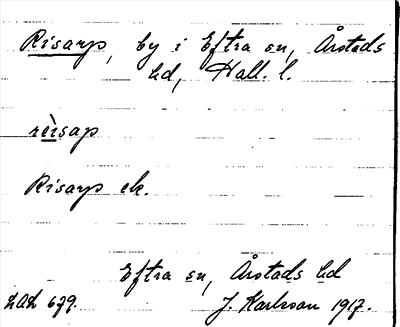 Risarp, by i Eftra sn, Årstads
hd, Hall. l.
reìsap
Risarp ek.
Eftra sn, Årstads hd
LAL 679. J. Karlsson 1917.